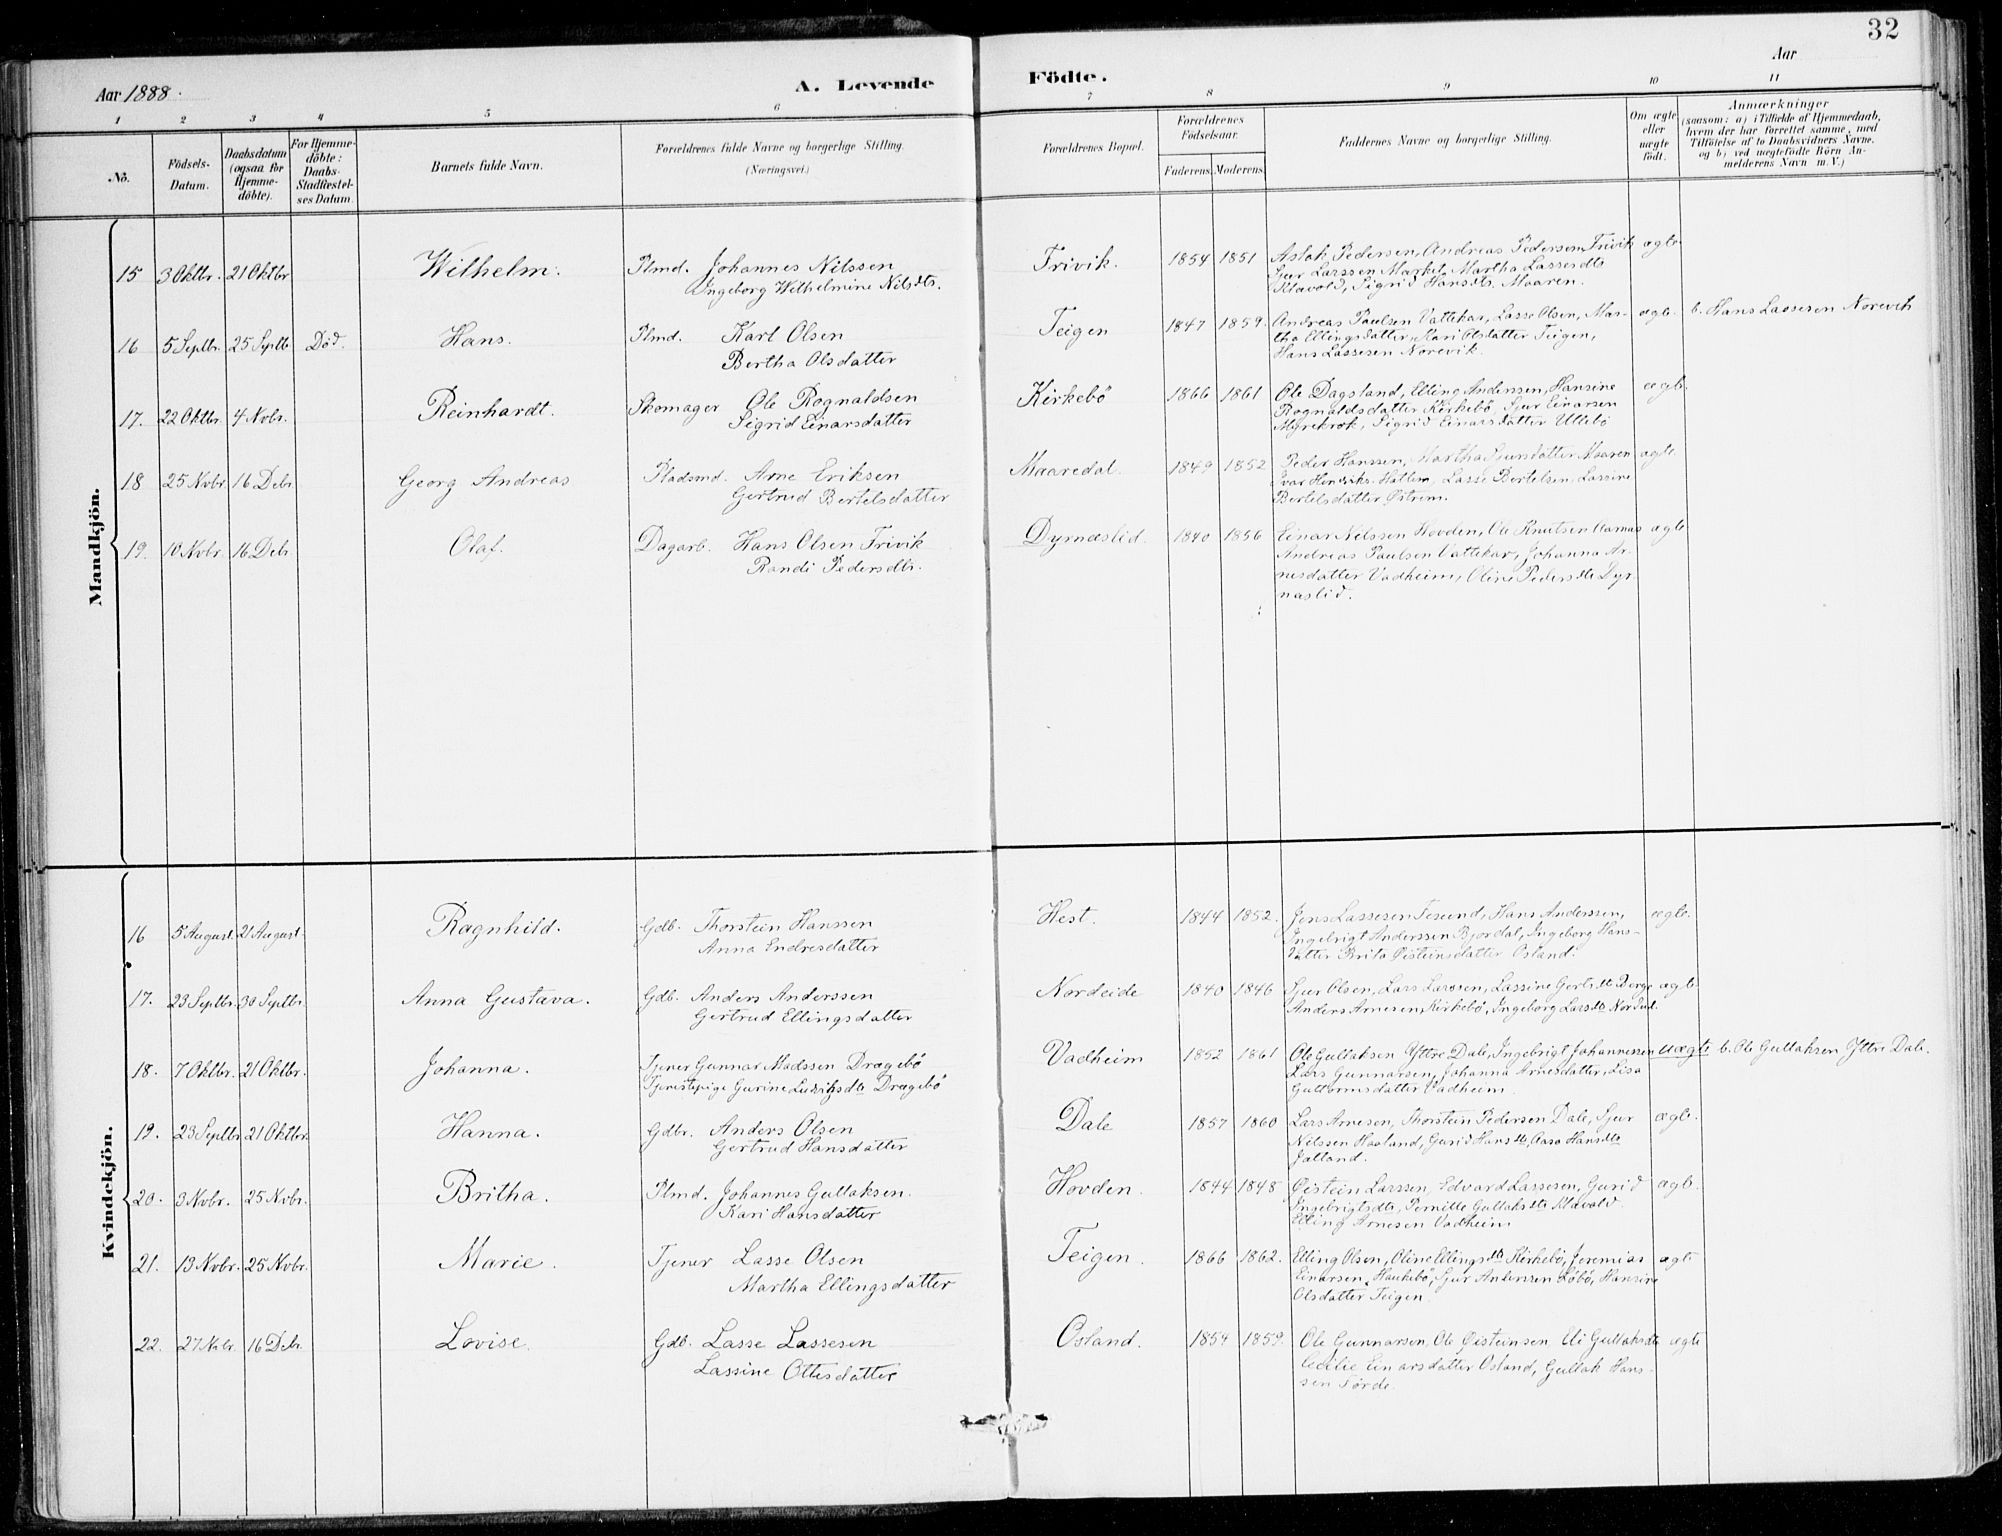 32
Aar 1888.
A. Levende Födte.
Aar
1 2 3 4 5 6 7 8 9 10 11
No.
Födsels-Datum.
Daabsdatum (ogsaa for Hjemmedöbte).
For Hjemmedöbte: Daabs-Stadfæstelses Datum.
Barnets fulde Navn.
Forældrenes fulde Navne og borgerlige Stilling. (Næringsvei.)
Forældrenes Bopæl.
Forældrenes Födselsaar.
Faderens. Moderens.
Faddernes Navne og borgerlige Stilling.
Om ægte eller uægte födt.
Anmærkninger
(saasom: a) i Tilfælde af Hjemmedaab,
hvem der har forrettet samme, med
Tilföielse af to Daabsvidners Navne,
og b) ved uægtefödte Börn Anmelderens Navn m. V.)
Mandkjön.
15 3 Oktbr. 21 Oktbr Wilhelm. Plmd. Johannes Nilssen Trivik. 1854 1851 Aslak Pedersen, Andreas Pedersen Trivik ægte
Ingeborg Wilhelmine Nilsdtr. Sjur Larssen Markel, Martha Lassesdtr
Klævold, Sigrid Hansdtr. Maaren.
16 5 Septbr. 25 Septb Död. Hans. Plmd. Karl Olsen Teigen 1847 1859. Andreas Paulsen Vattekar, Lasse Olsen, Mar- ægte. b. Hans Lassesen Norevik
Bertha Olsdatter tha Ellingsdatter, Kari Olsdatter Teigen,
Hans Lassesen Norevik.
17. 22 Oktbr. 4 Nvbr. Reinhardt. Skomager Ole Rognaldsen Kirkebö 1866 1861 Ole Dagsland, Elling Andersen, Hansine ægte.
Sigrid Einarsdatter Rognaldsdatter Kirkebö, Sjur Einarsen
Myrekrok, Sigrid Einarsdatter Ullebö
18 25 Nvbr. 16 Debr Georg Andreas Pladsmd. Arne Eriksen Maaredal. 1849 1852 Peder Hanssen, Martha Sjursdatter Maaren ægte
Gertrud Bertelsdatter Ivar Henriks. Hatlem, Lasse Bertelsen, Lassine
Bertelsdatter Östrem.
19. 10 Nvbr. 16 Debr Olaf. Dagarb. Hans Olsen Trivik Dyrnæslid. 1840 1856 Einar Nilssen Hovden, Ole Knutsen ægte
Randi Pedersdtr. Andreas Paulsen Vattekar, Johanna Ar-
nesdatter Vadheim, Oline Pedersdtr Dyr
næslid.
Kvindekjön.
16 5 August. 21 August. Ragnhild. Gdb. Thorstein Hanssen Hest. 1844 1852. Jens Lassesen Tesund, Hans Anderssen, ægte.
Anna Endresdatter Ingebrigt Anderssen Bjordal, Ingeborg Hans-
datter Brita Öisteinsdatter Osland.
17. 23 Septbr. 30 Septbr. Anna Gustava. Gdb. Anders Anderssen Nordeide 1840 1846 Sjur Olsen, Lars Larssen, Lassine Gertsdtr Berge ægte.
Gertrud Ellingsdatter Anders Arnesen, Kirkebö, Ingeborg Larsdtr
18. 7 Oktbr. 21 Oktbr. Johanna. Tjener Gunnar Madssen Drægebö Vadheim 1852 1861 Ole Gullaksen Yttre Dale, Ingebrigt Johannessen uægte b. Ole Gullaksen Yttre Dale.
Tjenestepige Gurine Ludvigsdtr Drægebö Lars Gunnarsen, Johanna Arnesdatter, Lisa
Guttormsdatter Vadheim.
19. 23 Septbr 21 Oktbr. Hanna. Gdbr. Anders Olsen Dale 1857 1860 Lars Arnesen, Thorstein Pedersen Dale, Sjur ægte.
Gertrud Hansdatter Nilssen Haaland, Gurid Hansdtr, Aasa Hansdtr
Jalland.
20. 3 Nvbr. 25 Nvbr. Britha. Plmd. Johannes Gullaksen. Hovden. 1844 1848 Öistein Larssen, Edvard Lassesen, Gurid ægte.
Kari Hansdatter Ingebrigtsdtr, Pernille Gullaksdtr Klævold
Elling Arnesen Vadheim
21. 13 Nvbr. 25 Nvbr. Marie. Tjener Lasse Olsen Teigen. 1866 1862. Elling Olsen, Oline Ellingsdtr Kirkebö, Jeremias ægte
Martha Ellingsdatter Einarsen Haukebö, Sjur Andersen Löbö, Hansine
Olsdatter Teigen.
22. 27 Nvbr. 16 Debr. Lovise. Gdb. Lasse Lassesen Osland. 1854 1859. Ole Gunnarsen, Ole Öisteinsen, Eli Gullaksdtr ægte
Lassine Ottesdatter Cecilie Einarsdatter Osland, Gullak Hans-
sen Förde.